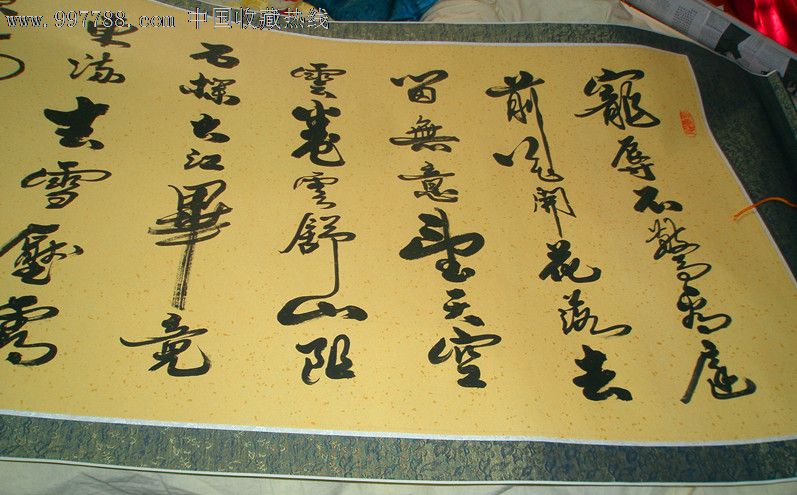 www.997788.com 中国收藏热线
寵辱不驚看庭
前花開花落去
留無意望天空
雲卷雲舒山阻
石攔大江畢竟
東流去雪壓霜